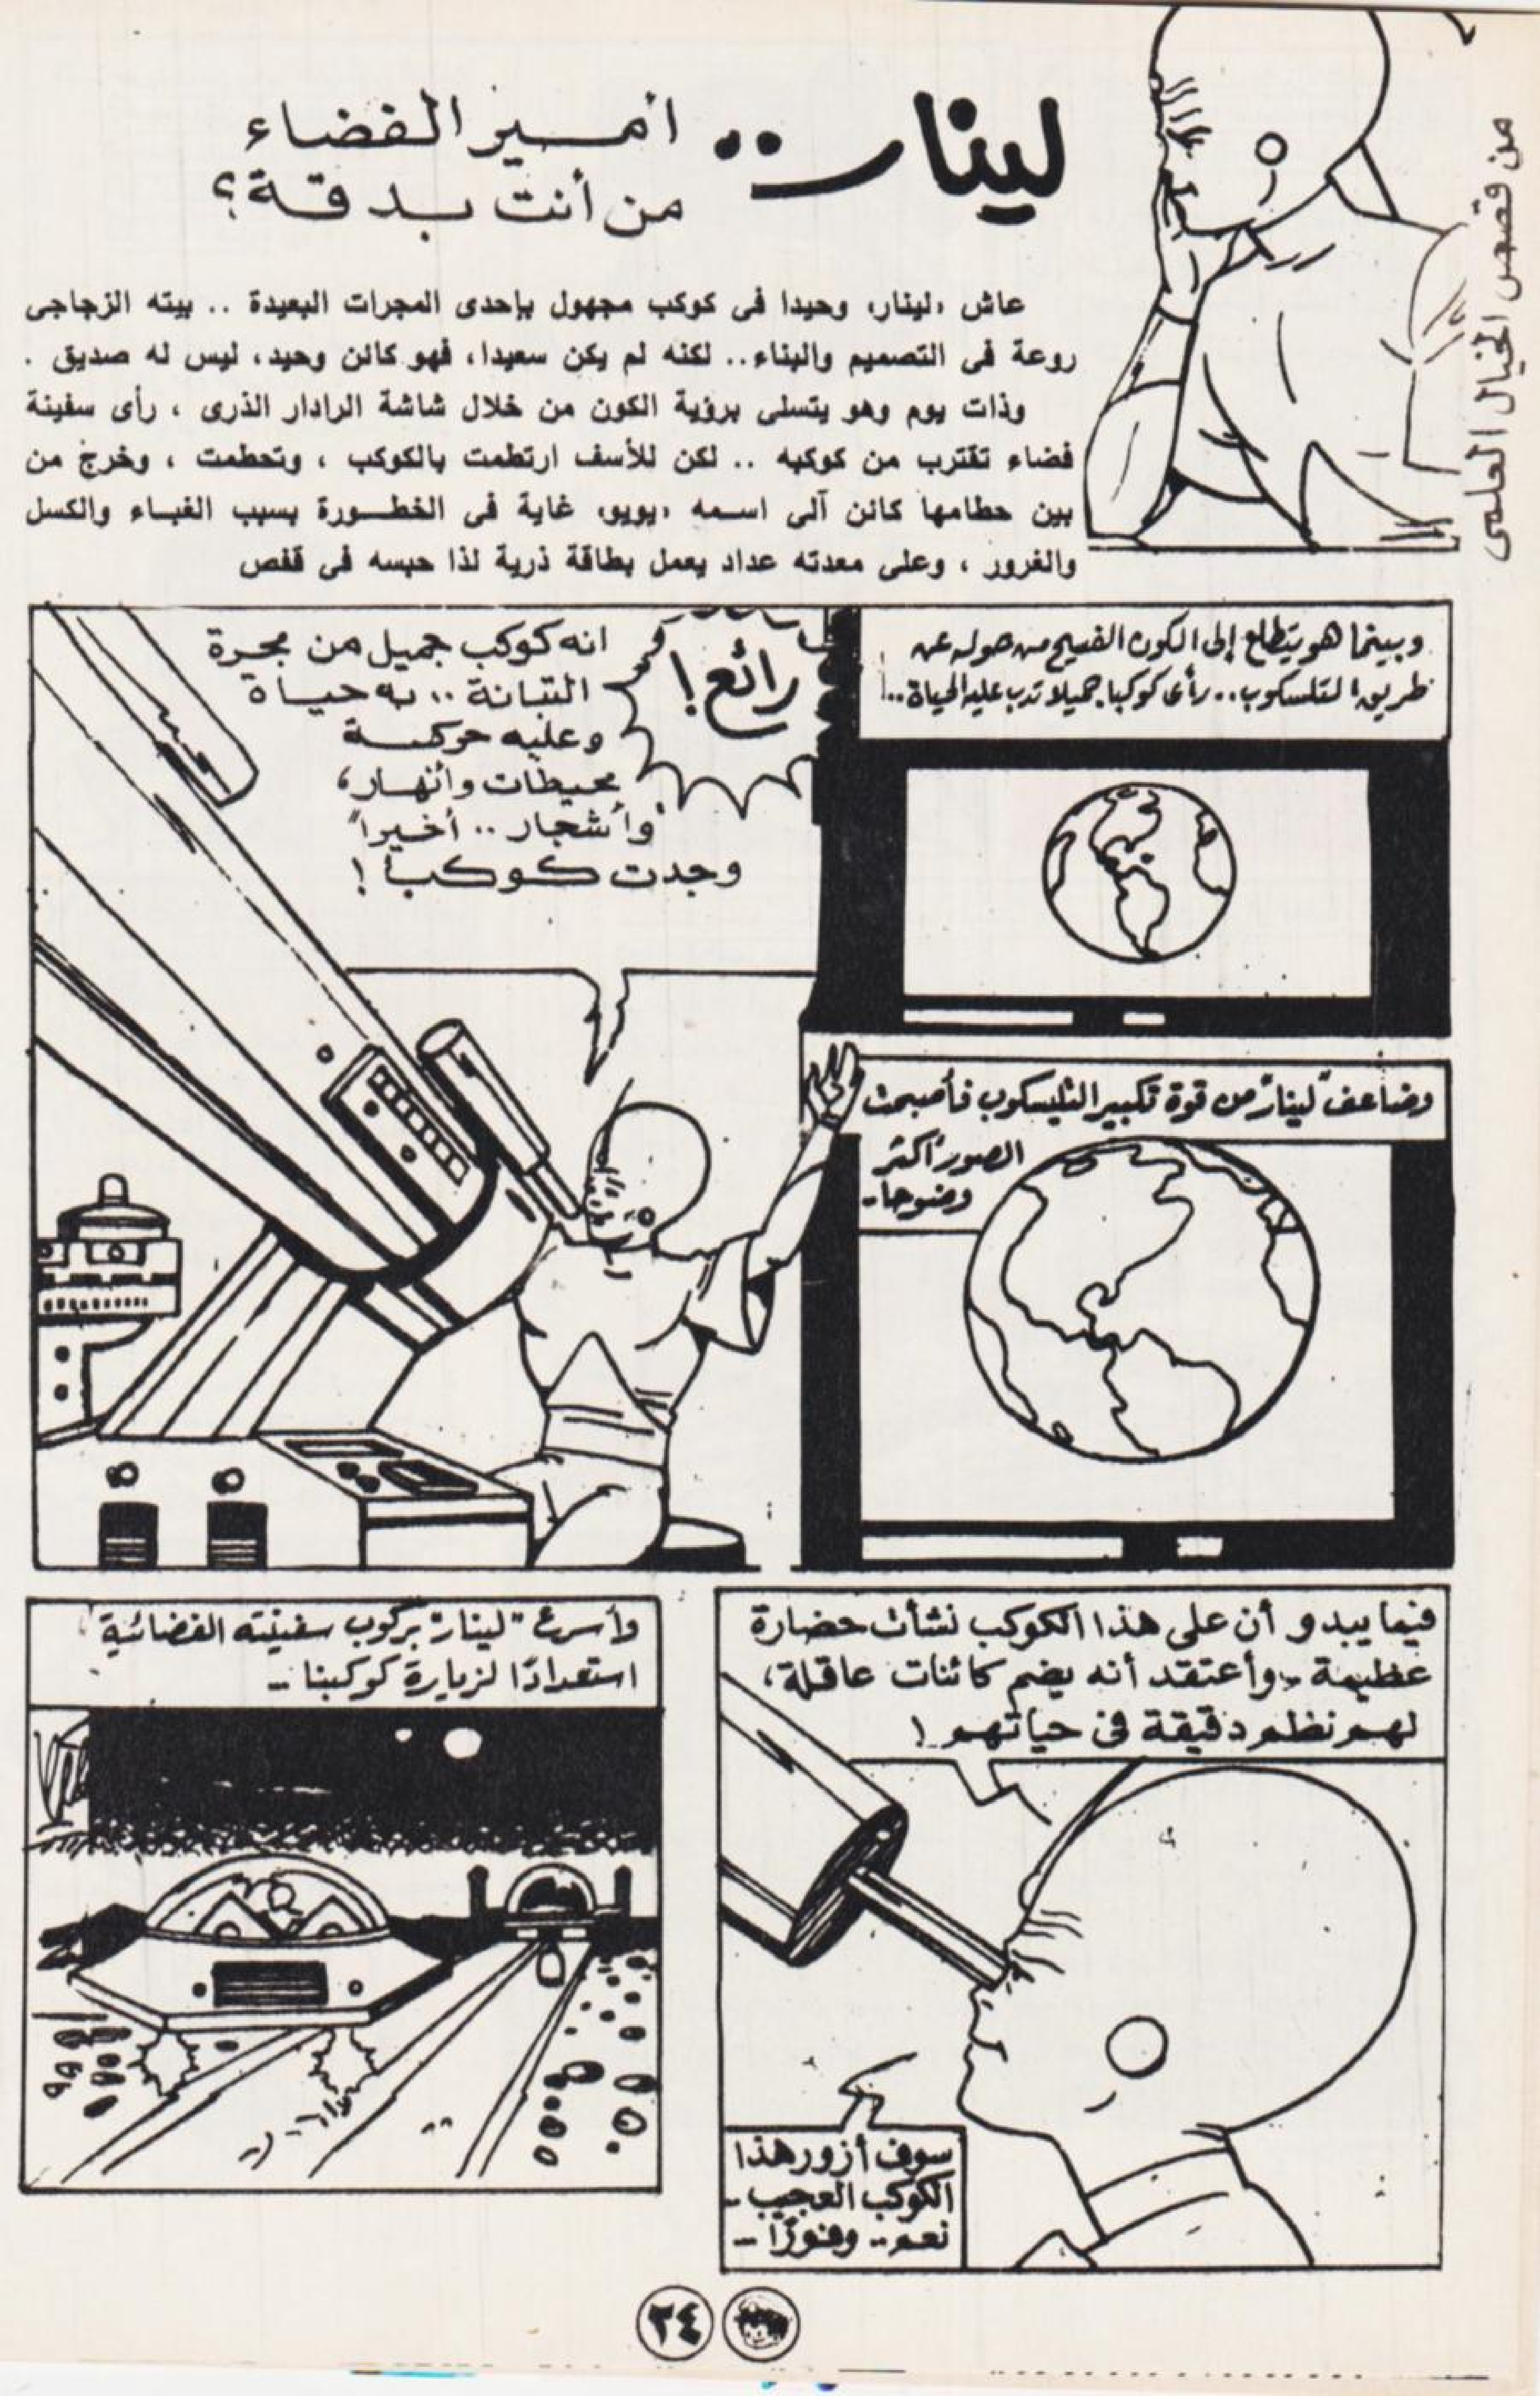 من قصص الخيال العلمى
لينار ..
أمير الفضاء
من أنت بدقة؟
عاش «لينار» وحيدا فى كوكب مجهول بإحدى المجرات البعيدة .. بيته الزجاجى
روعة فى التصميم والبناء.. لكنه لم يكن سعيدا، فهو كائن وحيد، ليس له صديق .
وذات يوم وهو يتسلى برؤية الكون من خلال شاشة الرادار الذرى ، رأى سفينة
فضاء تقترب من كوكبه .. لكن للأسف ارتطمت بالكوكب ، وتحطمت ، وخرج من
بين حطامها كائن آلى اسمه «يويو» غاية فى الخطورة بسبب الغباء والكسل
والغرور ، وعلى معدته عداد يعمل بطاقة ذرية لذا حبسه فى قفص
وبينما هو يتطلع إلى الكون الفسيح من حوله عن
طريق التلسكوب.. رأى كوكبا جميلا تدب عليه الحياة..!
رائع!
انه كوكب جميل من مجرة
التبانة .. به حياة
وعليه حركة
محيطات وأنهار،
وأشجار .. أخيرا"
وجدت كوكبا !
وضاعف "لينار" من قوة تكبير التليسكوب فأصبحت
الصور أكثر
وضوحا..
فيما يبدو أن على هذا الكوكب نشأت حضارة
عظيمة .. وأعتقد أنه يضم كائنات عاقلة،
لهم نظم دقيقة فى حياتهم !
سوف أزور هذا
الكوكب العجيب ..
نعم .. وفورًا ..
وأسرع "لينار" بركوب سفينته الفضائية
استعدادًا لزيارة كوكبنا ..
٢٤